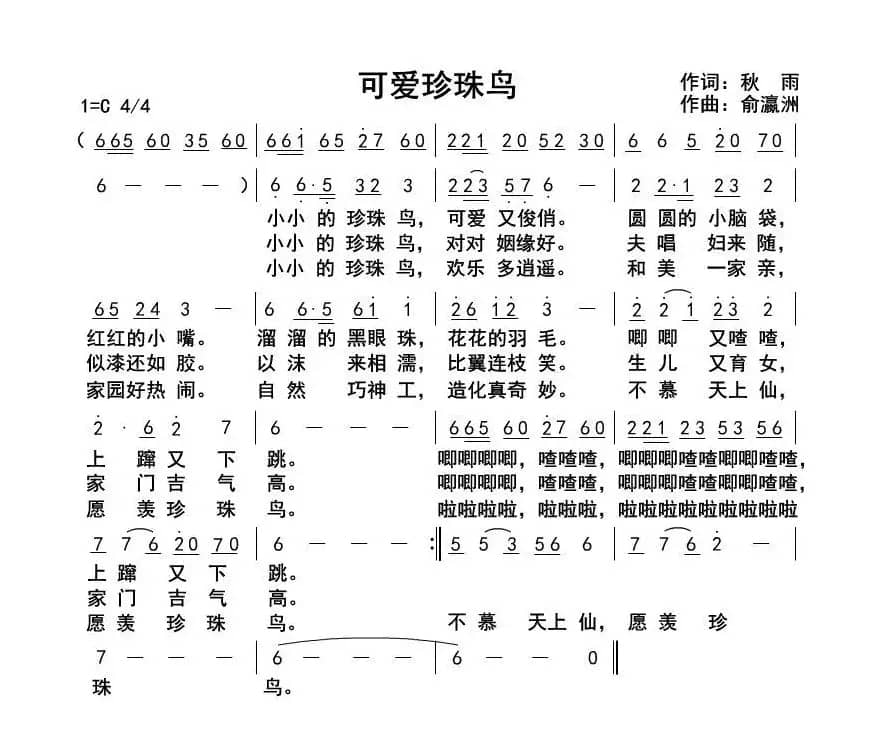 可爱珍珠鸟
作词：秋 雨
1=C 4/4
作曲：俞瀛洲
（ 665 60 35 60 | 661 65 27 60 | 221 20 52 30 | 6 6 5 20 70 |
6 — — — ） | 6 6·5 32 3 | 223 57 6 — | 2 2·1 23 2 |
小小 的 珍珠 鸟， 可爱 又俊俏。 圆 圆的 小脑 袋，
小小 的 珍珠 鸟， 对对 姻缘好。 夫 唱 妇来 随，
小小 的 珍珠 鸟， 欢乐 多逍遥。 和 美 一家 亲，
65 24 3 — | 6 6·5 61 1 | 26 12 3 — | 2 2 1 23 2 |
红红的小 嘴。 溜 溜的 黑眼 珠， 花花的羽 毛。 唧 唧 又喳 喳，
似漆还如 胶。 以 沫 来相 濡， 比翼连枝 笑。 生 儿 又育 女，
家园好热 闹。 自 然 巧神 工， 造化真奇 妙。 不 慕 天上 仙，
2 · 6 2 7 | 6 — — — | 665 60 27 60 | 221 23 53 56 |
上 蹿 又 下 跳。 唧唧唧唧，喳喳喳，唧唧唧喳喳唧唧喳喳，
家 门 吉 气 高。 唧唧唧唧，喳喳喳，唧唧唧喳喳唧唧喳喳，
愿 羡 珍 珠 鸟。 啦啦啦啦，啦啦啦，啦啦啦啦啦啦啦啦啦
7 7 6 20 70 | 6 — — — :‖ 5 5 3 56 6 | 7 7 6 2 — |
上 蹿 又 下 跳。
家 门 吉 气 高。
愿 羡 珍 珠 鸟。 不 慕 天上 仙， 愿 羡 珍
7 — — — | 6 — — — | 6 — — 0 ‖
珠 鸟。